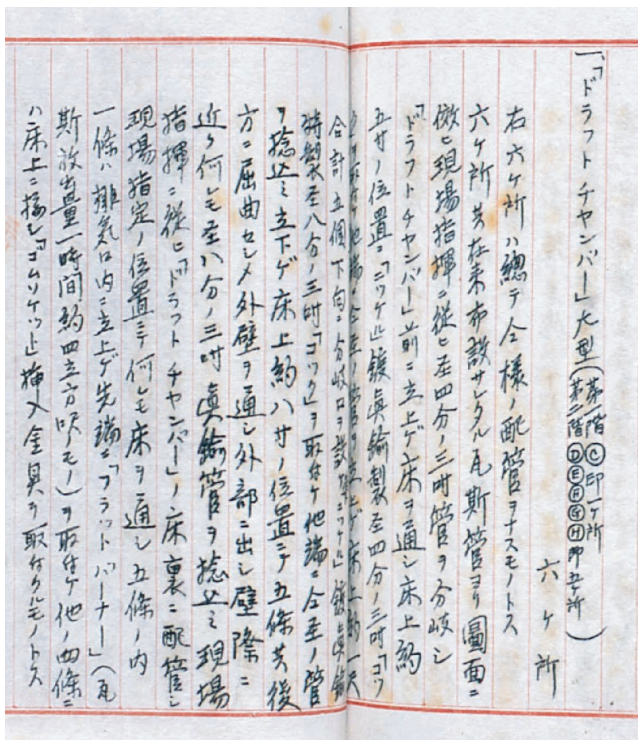 一、「ドラフトチャンバー」大型（第一階Ⓒ印一ケ所 第二階ⒹⒺⒻⒼⒽ印五ケ所）
六ケ所
右六ケ所ハ總テ仝様ノ配管ヲナスモノトス
六ケ所共在来布設サレタル瓦斯管ヨリ圖面ニ
倣ヒ現場指揮ニ従ヒ径四分ノ三吋管ヲ分岐シ
「ドラフトチャンバー」前ニ立上ゲ床ヲ通シ床上約
五寸ノ位置ニ「ニッケル」鍍眞鍮製径四分ノ三吋「コッ
取付ケ他端ニ仝径ノ管ヲ立上ゲ床上約一尺
合計五個下向ニ分岐口ヲ設ケ「ニッケル」鍍眞鍮
特製径八分ノ三吋「コック」ヲ取付ケ他端ニ仝径ノ管
ヲ捻込ミ立下ゲ床上約八寸ノ位置ニテ五條共後
方ニ屈曲セシメ外壁ヲ通シ外部ニ出シ壁際ニ
近ク何レモ径八分ノ三吋眞鍮管ヲ捻込ミ現場
指揮ニ従ヒ「ドラフトチャンバー」ノ床裏ニ配管シ
現場指定ノ位置ニテ何レモ床ヲ通シ五條ノ内
一條ハ排気口内ニ立上ゲ先端ニ「フラットバーナー」（瓦
斯放出量一時間約四立方呎ノモノ）ヲ取付ケ他ノ四條ニ
ハ床上ニ接シ「ゴムソケット」挿入金具ヲ取付クルモノトス